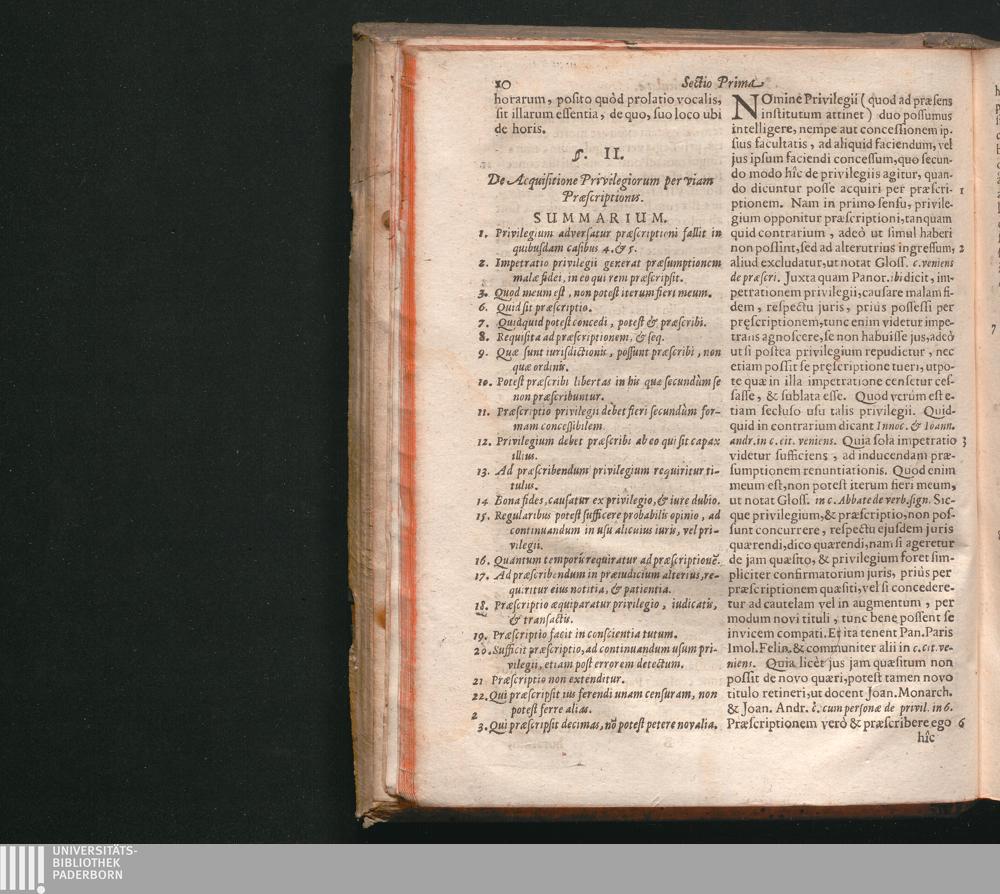 10 Sectio Prima
horarum, posito quòd prolatio vocalis,
sit illarum essentia, de quo, suo loco ubi
de horis.
§. II.
De Acquisitione Privilegiorum per viam
Præscriptionis.
SUMMARIUM.
1. Privilegium adversatur præscriptioni fallit in
quibusdam casibus 4. & 5.
2. Impetratio privilegii generat præsumptionem
malæ fidei, in eo qui rem præscripsit.
3. Quod meum est, non potest iterum fieri meum.
6. Quid sit præscriptio.
7. Quidquid potest concedi, potest & præscribi.
8. Requisita ad præscriptionem, & seq.
9. Quæ sunt iurisdictionis, possunt præscribi, non
quæ ordinis.
10. Potest præscribi libertas in his quæ secundùm se
non præscribuntur.
11. Præscriptio privilegii debet fieri secundùm for-
mam concessibilem
12. Privilegium debet præscribi ab eo qui sit capax
illius.
13. Ad præscribendum privilegium requiritur ti-
tulus.
14 Bona fides, causatur ex privilegio, & iure dubio.
15. Regularibus potest sufficere probabilis opinio, ad
continuandum in usu alicuius iuris, vel pri-
vilegii.
16. Quantum temporũ requiratur ad præscriptionẽ.
17. Ad præscribendum in præiudicium alterius, re-
quiritur eius notitia, & patientia.
18. Præscriptio æquiparatur privilegio, iudicatis,
& transactis.
19. Præscriptio facit in conscientia tutum.
20. Sufficit præscriptio, ad continuandum usum pri-
vilegii, etiam post errorem detectum.
21 Præscriptio non extenditur.
22. Qui præscripsit ius ferendi unam censuram, non
potest ferre alias.
2
3. Qui præscripsit decimas, nõ potest petere novalia.
NOmine Privilegii (quod ad præsens
institutum attinet) duo possumus
intelligere, nempe aut concessionem ip-
sius facultatis, ad aliquid faciendum, vel
jus ipsum faciendi concessum, quo secun-
do modo hîc de privilegiis agitur, quan-
do dicuntur posse acquiri per præscri- 1
ptionem. Nam in primo sensu, privile-
gium opponitur præscriptioni, tanquam
quid contrarium, adeò ut simul haberi
non possint, sed ad alterutrius ingressum, 2
aliud excludatur, ut notat Gloss. c. veniens
de præscri. Juxta quam Panor. ibi dicit, im-
petrationem privilegii, causare malam fi-
dem, respectu juris, priùs possessi per
pręscriptionem, tunc enim videtur impe-
trans agnoscere, se non habuisse jus, adeò
ut si postea privilegium repudietur, nec
etiam possit se pręscriptione tueri, utpo-
te quæ in illa impetratione censetur ces-
sasse, & sublata esse. Quod verùm est e-
tiam secluso usu talis privilegii. Quid-
quid in contrarium dicant Innoc. & Ioann.
andr. in c. cit. veniens. Quia sola impetratio 3
videtur sufficiens, ad inducendam præ-
sumptionem renuntiationis. Quod enim
meum est, non potest iterum fieri meum,
ut notat Gloss. in c. Abbate de verb. sign. Sic-
que privilegium, & præscriptio, non pos-
sunt concurrere, respectu ejusdem juris
quærendi, dico quærendi, nam si ageretur
de jam quæsito, & privilegium foret sim-
pliciter confirmatorium juris, priùs per
præscriptionem quæsiti, vel si concedere-
tur ad cautelam vel in augmentum, per
modum novi tituli, tunc bene possent se
invicem compati. Et ita tenent Pan. Paris
Imol. Felin. & communiter alii in c. cit. ve-
niens. Quia licèt jus jam quæsitum non
possit de novo quæri, potest tamen novo
titulo retineri, ut docent Joan. Monarch.
& Joan. Andr. c. cum personæ de privil. in 6.
Præscriptionem verò & præscribere ego 6
hîc
7
UNIVERSITÄTS-
BIBLIOTHEK
PADERBORN